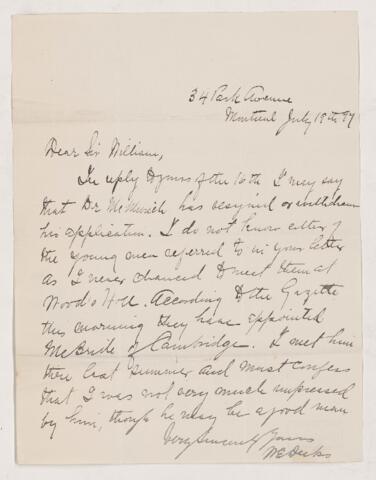 34 Park Avenue
Montreal July 19th 97
Dear Sir William,
In reply to yours of the 16th I may say
that Dr McMurrich has resigned or withdrawn
his application. I do not know either of
the young men referred to in your letter
as I never chanced to meet them at
Woods Holl. According to the Gazette
this morning they have appointed
McBride of Cambridge. I met him
there last summer and must confess
that I was not very much impressed
by him, though he may be a good man
Very Sincerely Yours
W E Deeks